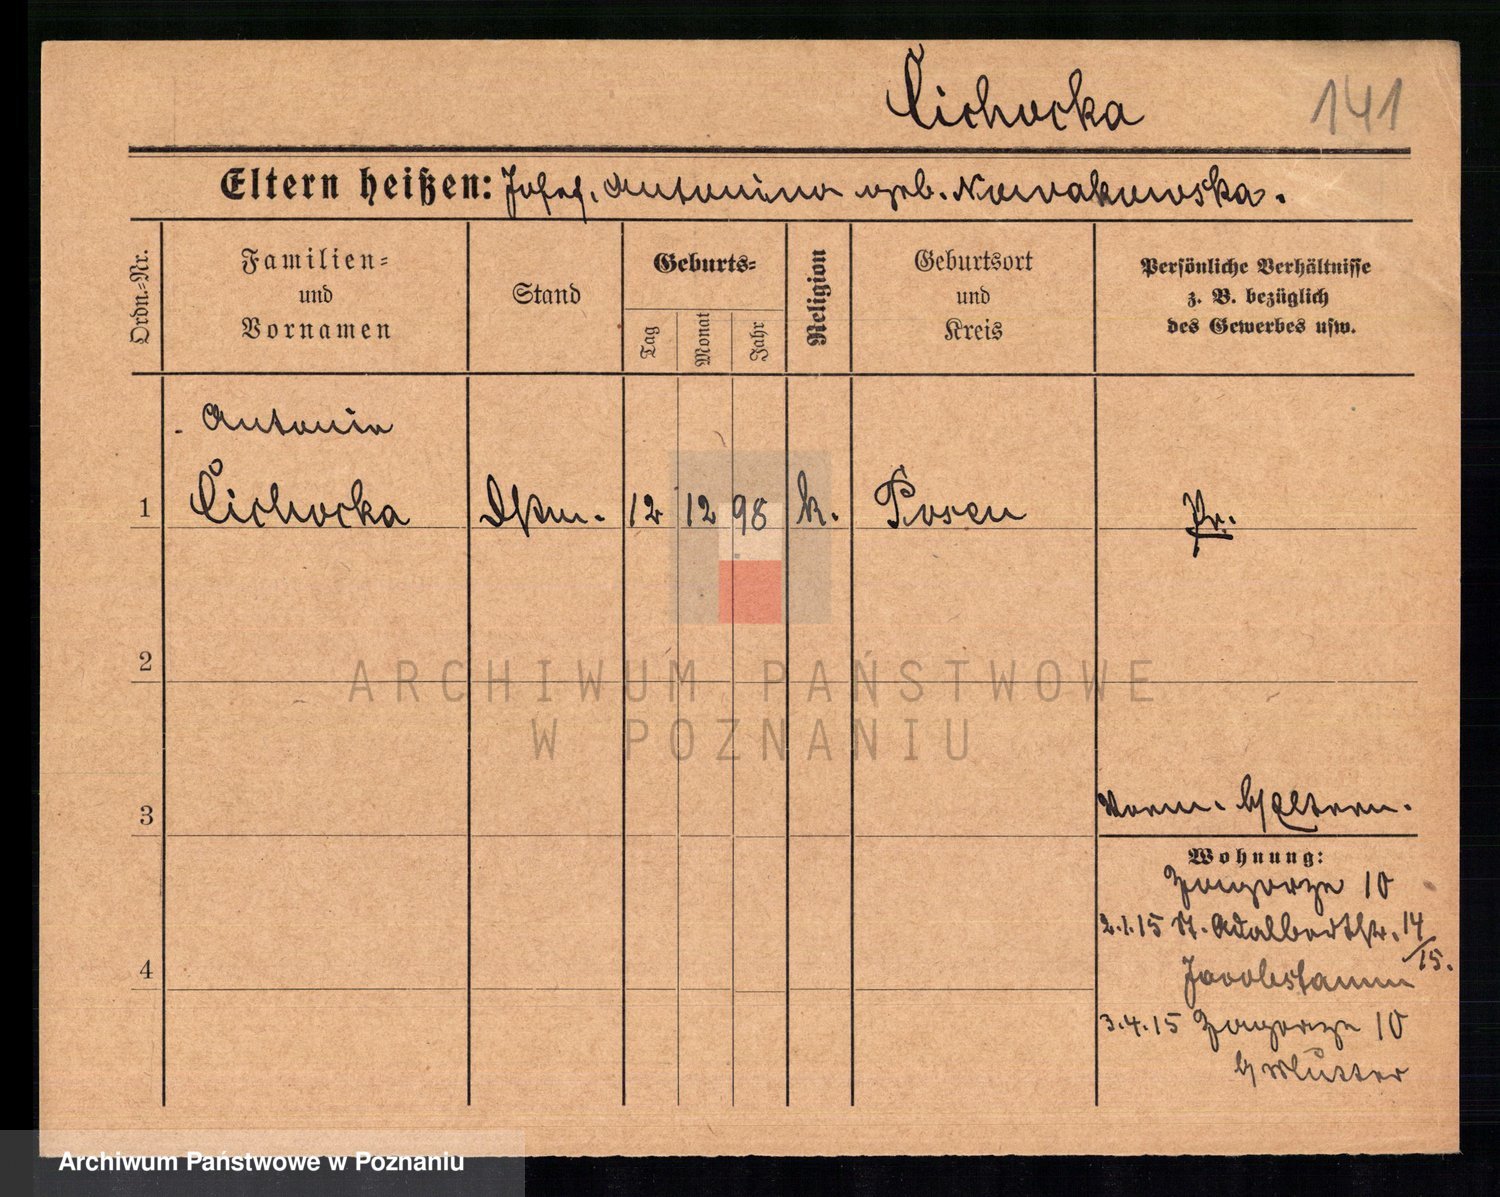 Cichocka
141
Eltern heißen: Josef, Antonina geb. Nowakowska.
Ordn.-Nr.
Familien-
und
Vornamen
Stand
Geburts-
Tag
Monat
Jahr
Religion
Geburtsort
und
Kreis
Persönliche Verhältnisse
z. B. bezüglich
des Gewerbes usw.
Antonia
1 Cichocka 12 12 98 k. Posen Pr.
2
ARCHIWUM PAŃSTWOWE
W POZNANIU
3
Vorm. b/Eltern.
Wohnung:
Zagorze 10
2.1.15 St. Adalbertstr. 14/15.
4
3.4.15 Zagorze 10
b/Mutter
Archiwum Państwowe w Poznaniu